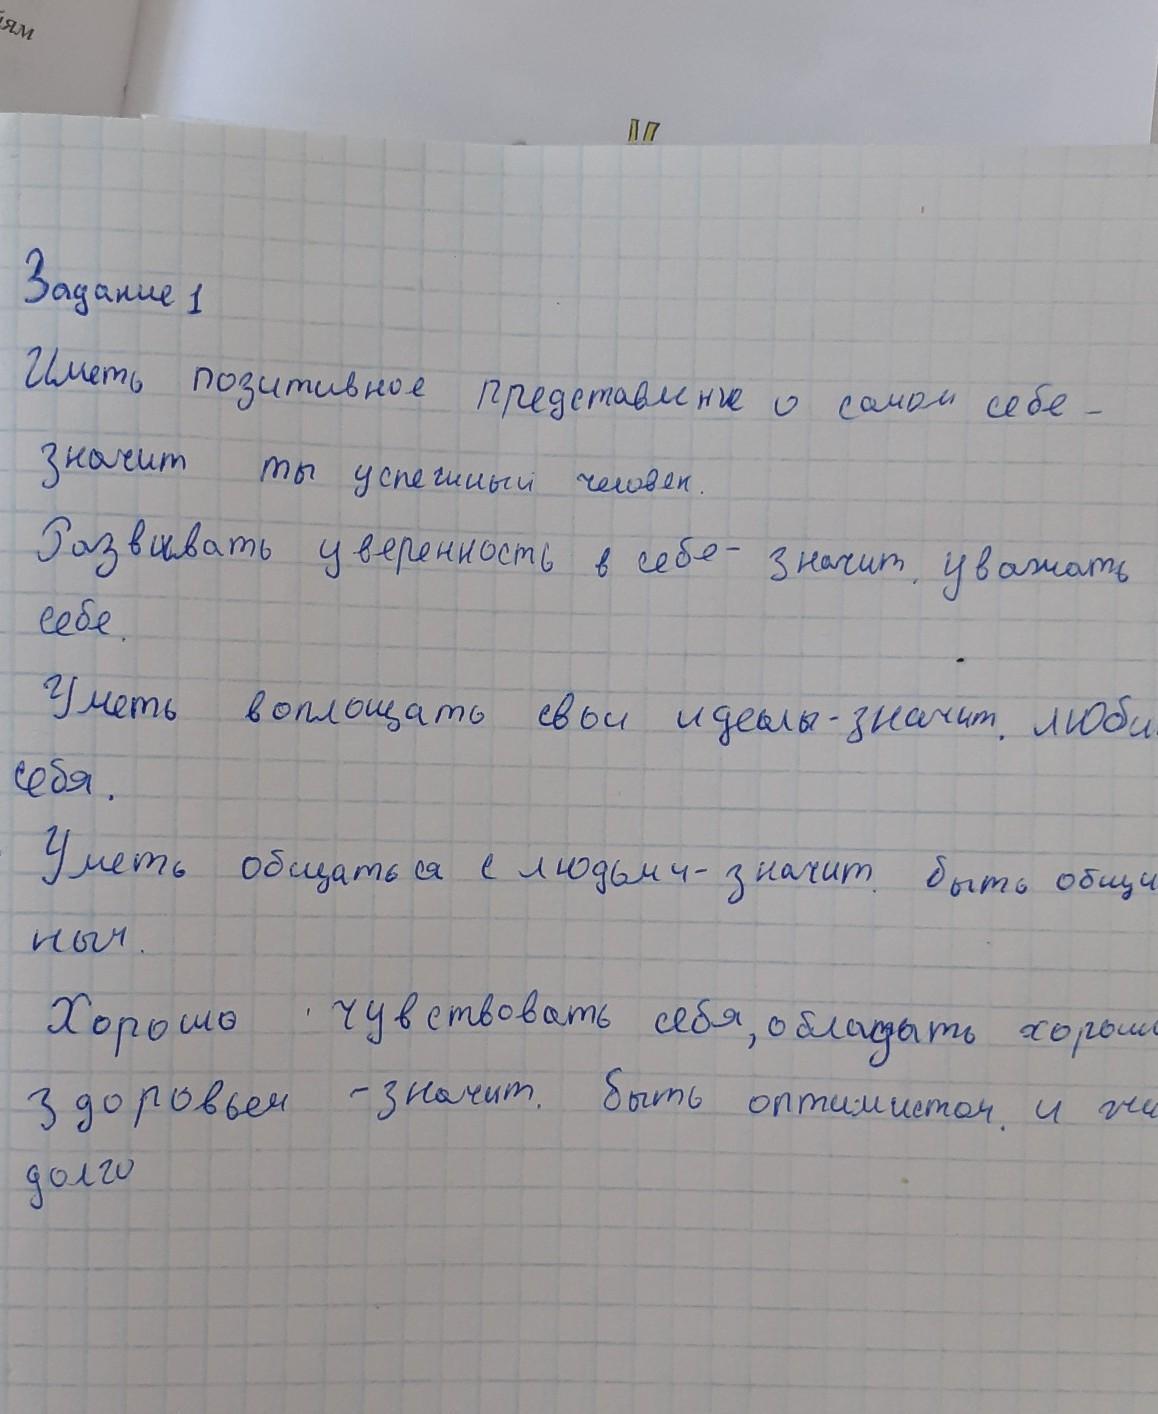 иям
Задание 1
Иметь позитивное представление о самом себе -
значит ты успешный человек.
Развивать уверенность в себе - значит. уважать
себе.
Уметь воплощать свои идеалы - значит. люби
себя.
Уметь общаться с людьми - значит. быть общи
ным.
Хорошо чувствовать себя, обладать хорош
здоровьем - значит. быть оптимистом. и жи
долго